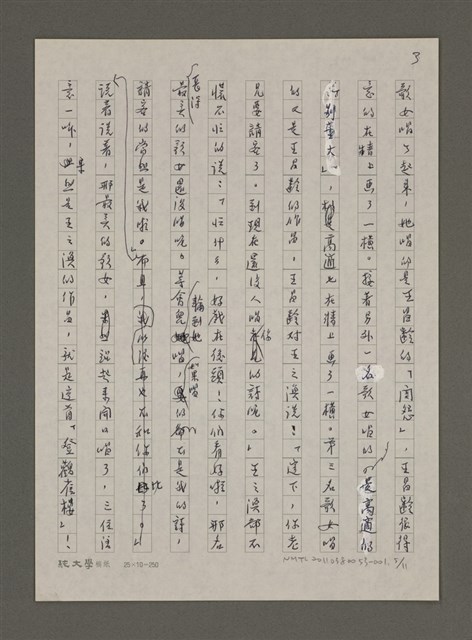 3
歌女唱了起來，她唱的是王昌齡的「閨怨」，王昌齡很得
意的在牆上畫了一橫。接著另外一名歌女唱的是高適的
「別董大」，高適也在牆上畫了一橫。第三名歌女唱
的又是王昌齡的作品，王昌齡對王之渙說：「這下，你老
兄要請客了。到現在還沒人唱你的詩呢。」王之渙卻不
慌不忙的說：「忙什麼，好戲在後頭！你們看好啦，那名
最美的長得歌女還沒唱呢，等會兒輪到她唱，如果唱的不是我的詩，
請客的當然是我啦。而且，我以後再也不和你們比了。」
說著說著，那最美的歌女，開口唱了，三位注
意一聽，果然是王之渙的作品，就是這首「登鸛雀樓」！
純文學稿紙 25×10=250